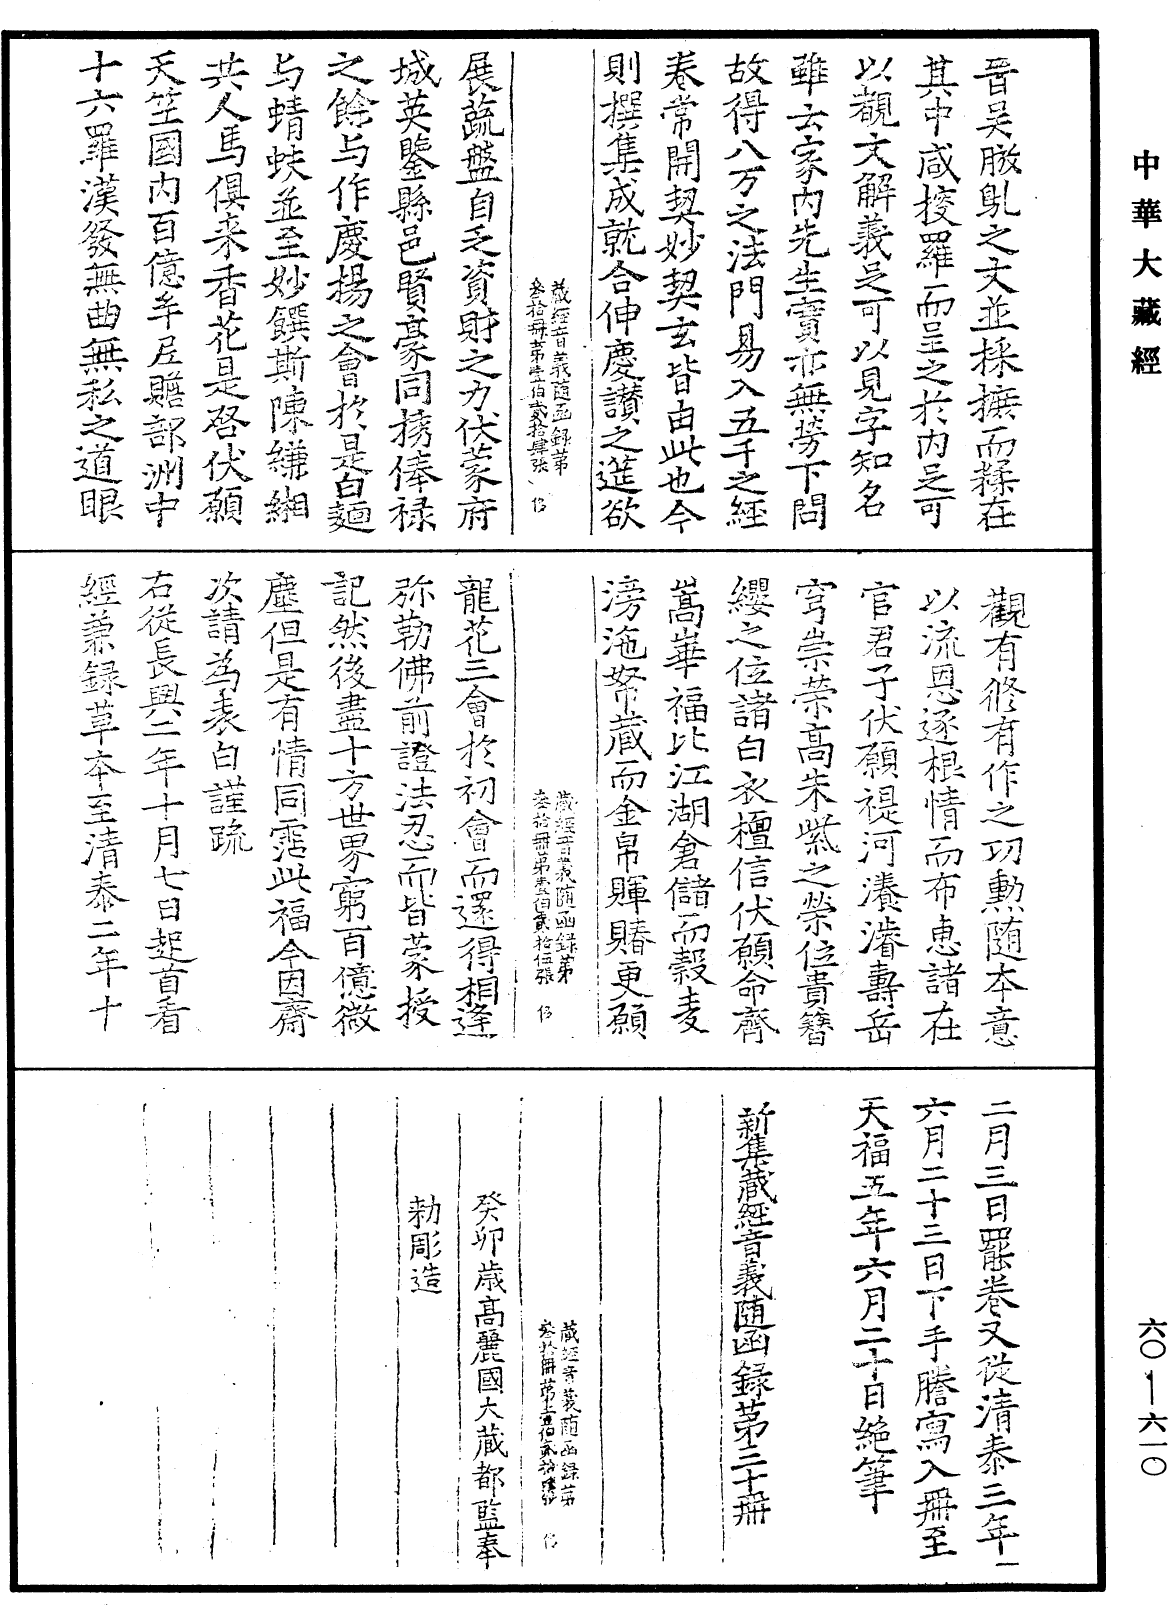 中華大藏經
晉吴敫臮之文並採摭而鞣在
其中咸搜羅而呈之於内足可
以觀文解義足可以見字知名
雖云家内先生實亦無勞下問
故得八万之法門易入五千之經
卷常開契妙契玄皆由此也今
則撰集成就合伸慶讃之筵欲
藏經音義随函録第
叁拾冊第壹伯貳拾肆張
展蔬盤自乏資財之力伏蒙府
城英鑒縣邑賢豪同捴俸禄
之餘与作慶揚之會於是白麺
与蜻蚨並至妙饌斯陳縑緗
共人馬俱来香花是啓伏願
天竺國内百億牟尼贍部洲中
十六羅漢發無曲無私之道眼
觀有修有作之㓛勲随本意
以流恩逐根情而布恵諸在
官君子伏願禔河濅濬壽岳
穹崇荣高朱紫之榮位貴簪
纓之位諸白衣檀信伏願命齊
嵩華福比江湖倉儲而穀麦
滂沲帑藏而金帛賱賰更願
藏經音義随函録第
叁拾冊第壹伯貳拾伍張
龍花三會於初會而還得相逢
弥勒佛前證法忍而皆蒙授
記然後盡十方世界窮百億微
塵但是有情同霑此福今因齋
次請為表白謹䟽
右從長興二年十月七日起首看
經兼録草本至清泰二年十
二月三日罷卷又從清泰三年一
六月二十三日下手謄寫入冊至
天福五年六月二十日絶筆
新集藏經音義随函録第三十冊
藏經音義随函録第
叁拾冊第壹伯貳拾陸張
癸卯歳高麗國大藏都監奉
勑彫造
六〇—六一〇